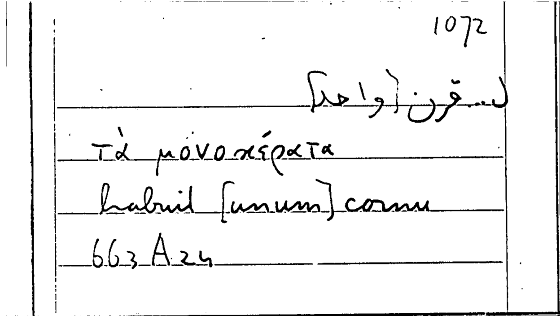 1072
لـ...قرن [واحد]
τὰ μονοκέρατα
habuit [unum] cornu
663 A 24